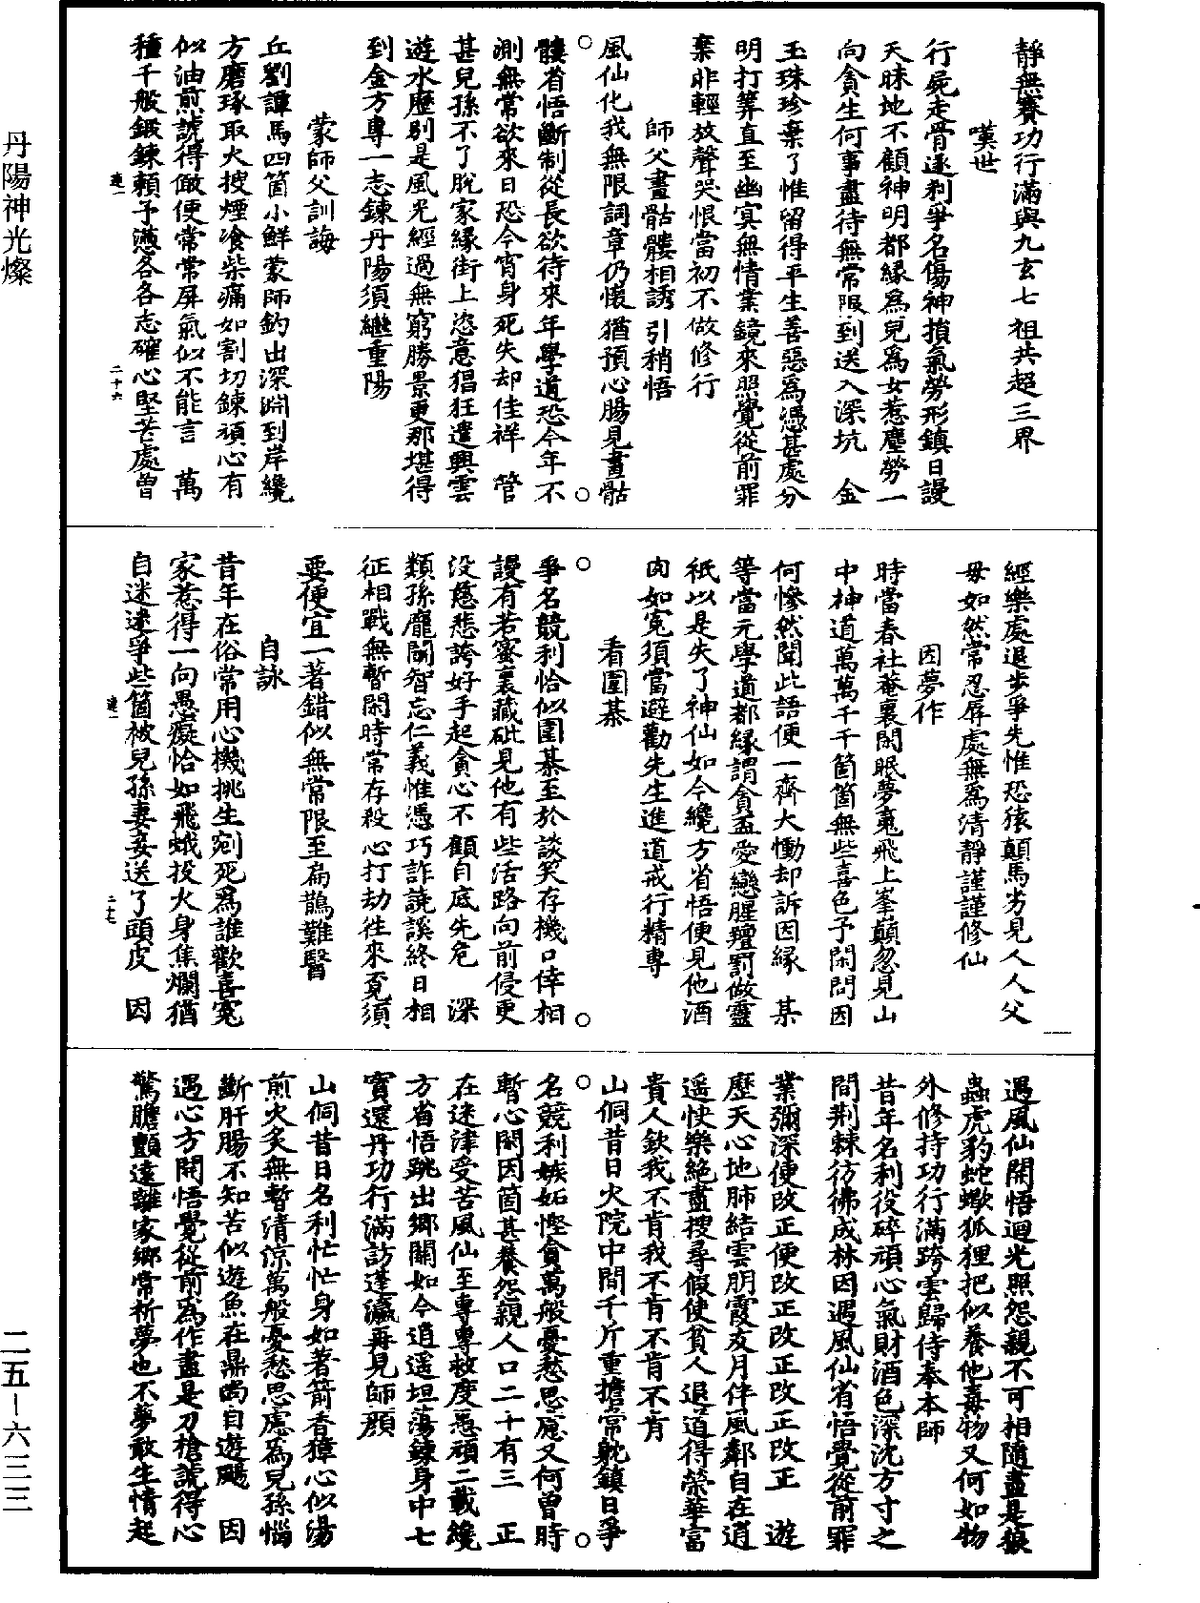 靜無賽功行滿與九玄七祖共超三界
嘆世
行屍走骨逐利爭名傷神損氣勞形鎮日謾
天昧地不顧神明都緣為兒為女惹塵勞一
向貪生何事盡待無常限到送入深坑　金
玉珠珍棄了惟留得平生善惡為憑甚處分
明打筭直至幽冥無情業鏡來照覺從前罪
棄非輕放聲哭恨當初不做修行
師父畫骷髏相誘引稍悟
風仙化我無限詞章仍懷猶預心腸見畫骷
髏省悟斷制從長欲待來年學道恐今年不
測無常欲來日恐今宵身死失却佳祥　管
甚兒孫不了脫家緣街上恣意猖狂遣興雲
遊水歷別是風光經過無窮勝景更那堪得
到金方專一志鍊丹陽須繼重陽
蒙師父訓誨
丘劉譚馬四箇小鮮蒙師釣出深淵到岸纔
方磨琢取火搜煙飡柴痛如割切鍊頑心有
似油煎諕得做便常常屏氣似不能言　萬
種千般鍛鍊賴予懣各各志確心堅芒處曾
經樂處退步爭先惟恐猿顛馬劣見人人父
母如然常忍辱處無為清靜謹謹修仙
因夢作
時當春社菴裏閑眠夢䰟飛上峯巔忽見山
中神道萬萬千千箇箇無些喜色予閑問因
何慘然聞此語便一齊大慟却訴因緣　某
等當元學道都緣謂貪盃愛戀腥羶罰做靈
祇以是失了神仙如今纔方省悟便見他酒
肉如冤須當避勸先生進道戒行精專
看圍棊
爭名競利恰似圍棊至於談笑存機口倖相
謾有若蜜裏藏砒見他有些活路向前侵更
沒慈悲誇好手起貪心不顧自底先危　深
類孫龐鬭智忘仁義惟憑巧詐譊謑終日相
征相戰無暫閑時常存殺心打劫往來覓須
要便宜一著錯似無常限至扁鵲難醫
自詠
昔年在俗常用心機挑生剜死為誰歡喜冤
家惹得一向愚癡恰如飛蛾投火身焦爛猶
自迷迷爭些箇被兒孫妻妾送了頭皮　因
遇風仙開悟迴光照怨親不可相隨盡是猿
蟲虎豹蛇蠍狐狸把似養他毒物又何如物
外修持功行滿跨雲歸侍奉本師
昔年名利役碎頑心氣財酒色深沈方寸之
間荆棘彷彿成林因遇風仙省悟覺從前罪
業彌深便改正便改正改正改正改正　遊
歷天心地肺結雲朋霞友月伴風鄰自在逍
遥快樂絶盡搜尋假使貧人退道得榮華富
貴人欽我不肯我不肯不肯不肯
山侗昔日火院中間千斤重擔常躭鎮日爭
名競利嫉妬慳貪萬般憂愁思慮又何曾時
暫心閑因箇甚養怨親人口二十有三　正
在迷津受苦風仙至專專救度愚頑二載纔
方省悟跳出鄉關如今逍遥坦蕩鍊身中七
寶還丹功行滿訪蓬瀛再見師顔
山侗昔日名利忙忙身如著箭香獐心似湯
煎火炙無暫清涼萬般憂愁思慮為兒孫惱
斷肝腸不知苦似遊魚在鼎尚自遊颺　因
遇心方開悟覺從前為作盡是刀槍諕得心
驚膽顫遠離家鄉常祈夢也不夢敢生情起
丹陽神光燦
二五－六三三
二十六
二十七